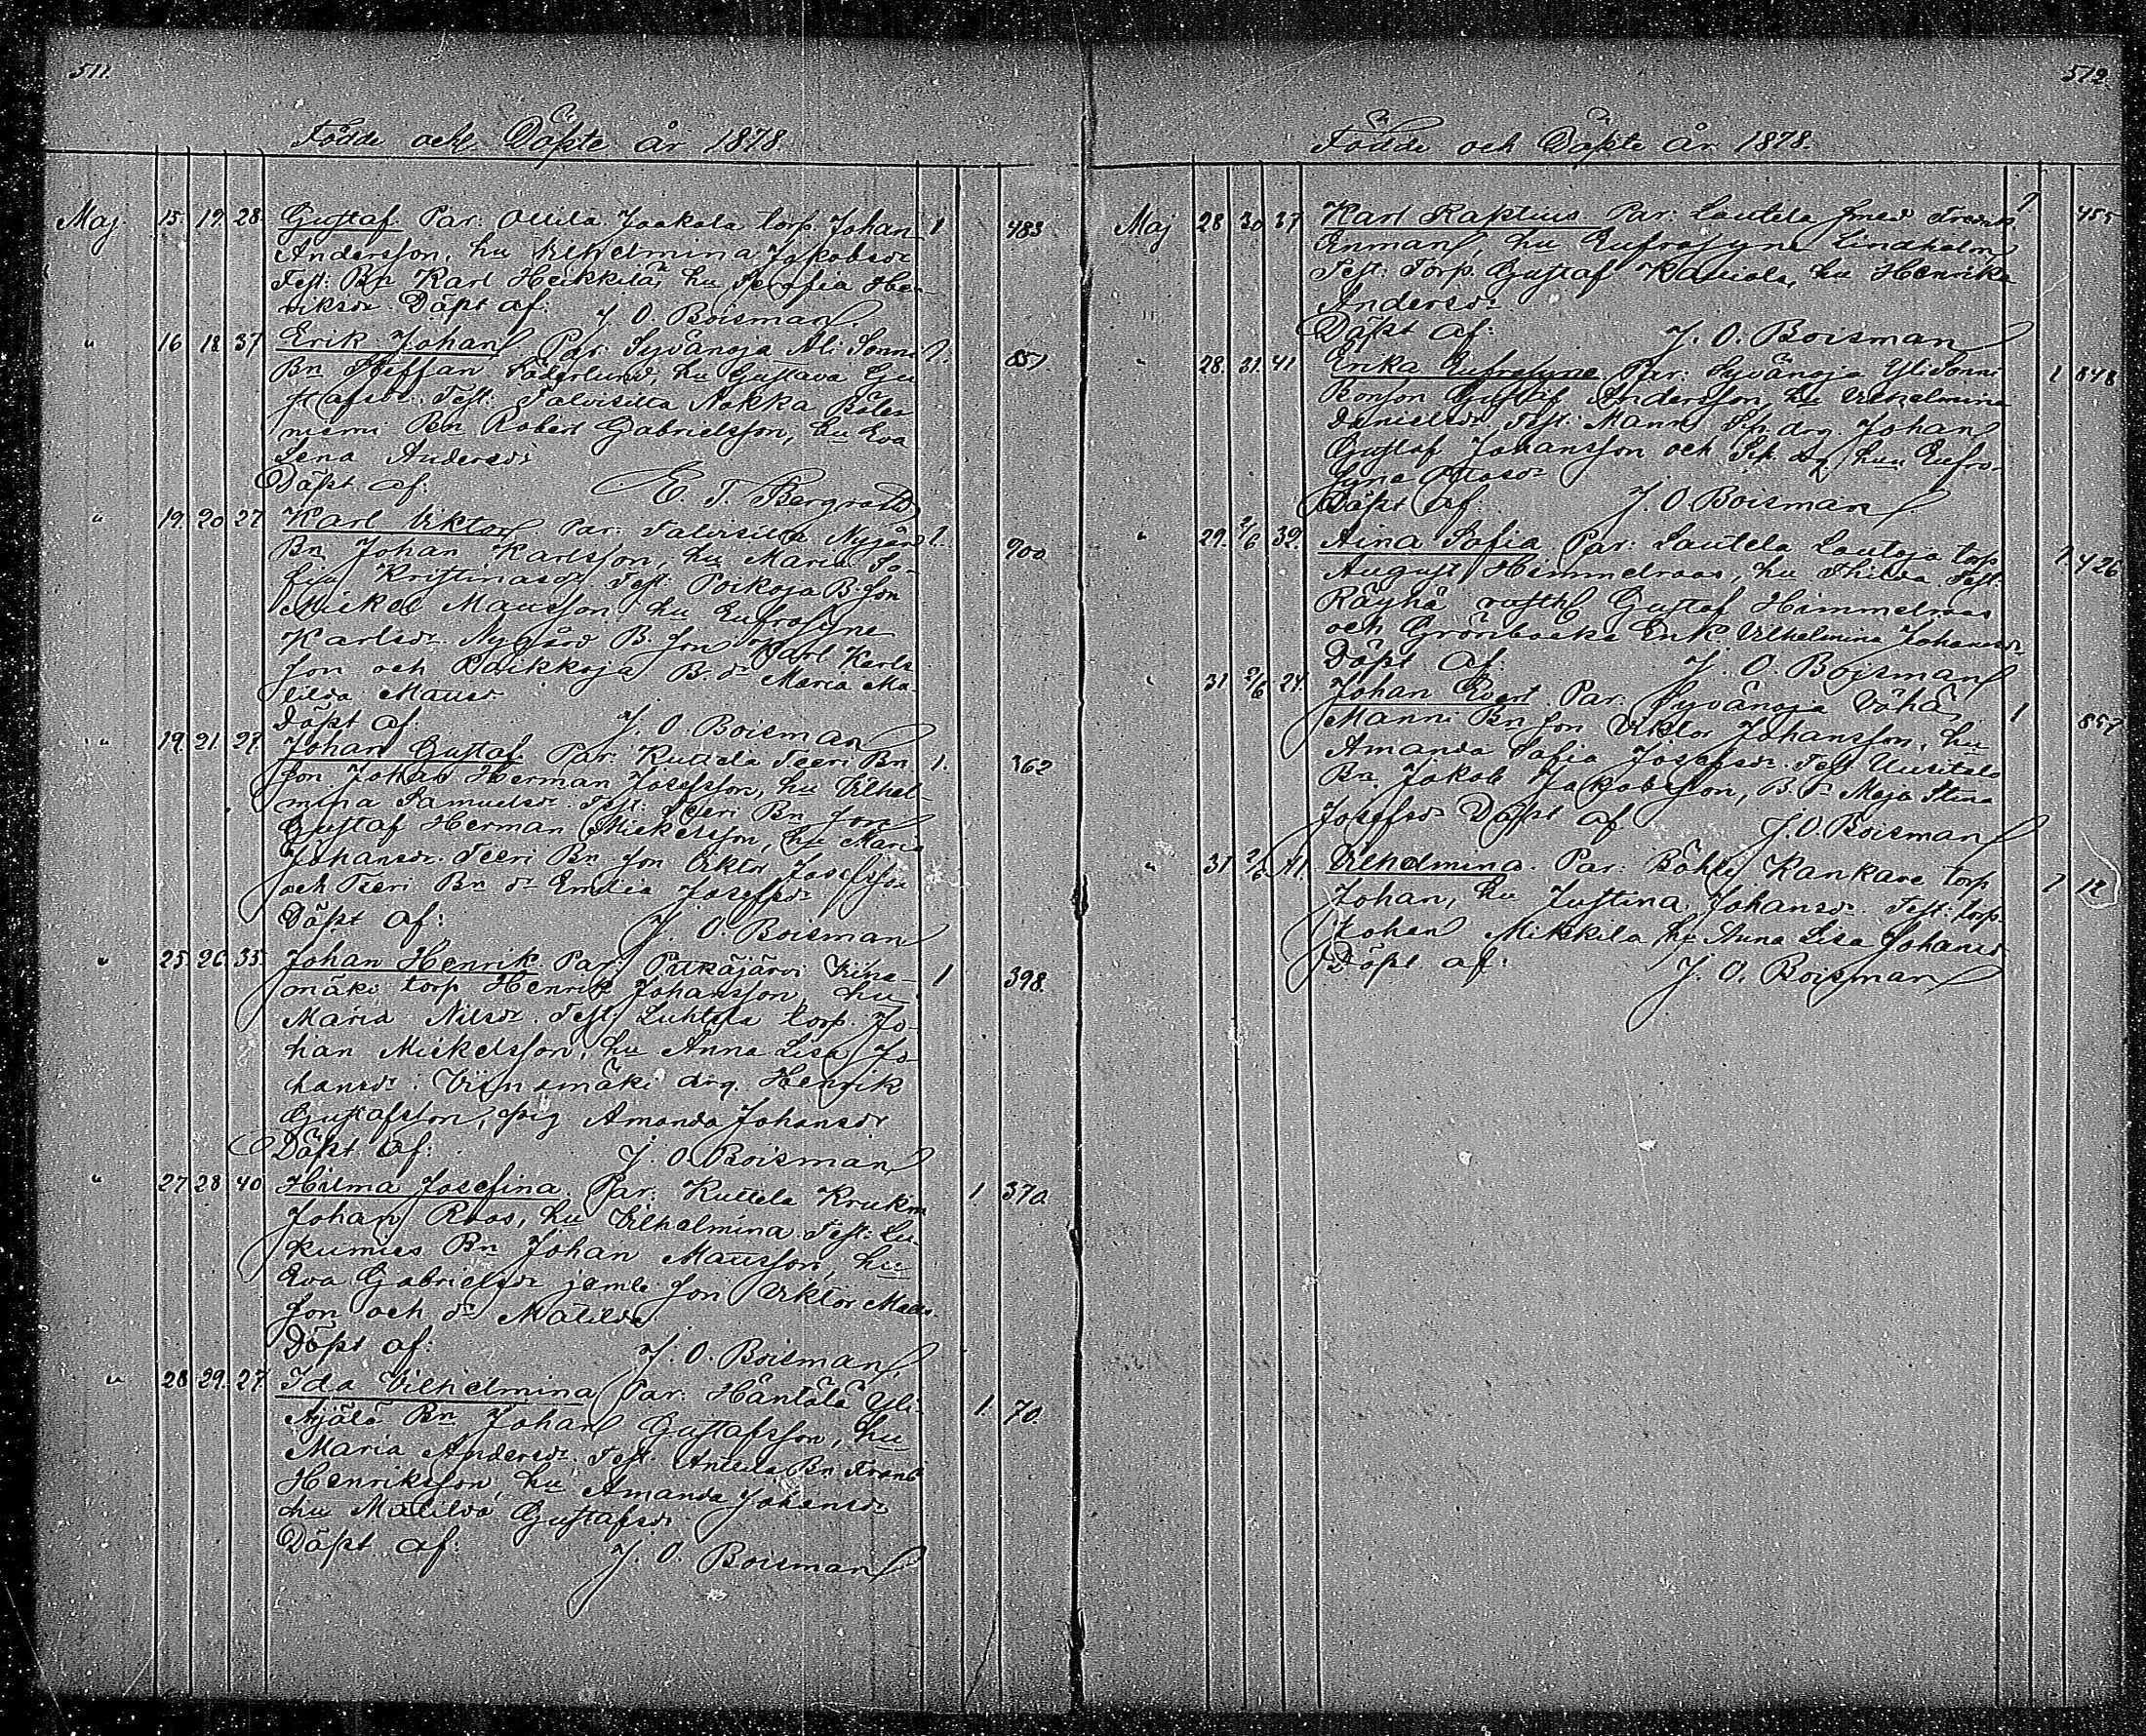 511.
Födde och Döpte år 1878.
Maj. 15. 19. 28. Gustaf. Par: Ollila Jaakola torp. Johan 1 483
Andersson, hu Vilhelmina Jakobsdr
Test: Bn Karl Heikkilä, hu Serafia Hen-
riksdr. Döpt af: J. O. Boisman.
" 16 18. 37. Erik Johan. Par: Syvänoja Ali Sonni 1. 851.
Bn Steffan Söderlund, hu Gustava Gu-
stafsdr. Test: Talvisilta Nokka
Bn Robert Gabrielsson, hu Eva
Lena Andersdr
Döpt af: E. T. Bergroth
" 19. 20 27. Karl Viktor. Par: Talvisilta Nygård 1. 900
Bn Johan Karlsson, hu Maria So-
fia Kristinasdr. Test: Poikoja B. son
Mickel Mausson, hu Eufrosyne
Karlsdr. Nygård B. son Karl Karls-
son och Raikkoja B. dr Maria Ma-
tilda Mausdr
Döpt af: J. O. Boisman
" 19. 21. 27. Johan Gustaf. Par: Kuttila Teeri Bn 1. 362
son Johan Herman Josefsson, hu Vilhel-
mina Samuelsdr. Test: Teeri Bn son
Gustaf Herman Mickelsson, hu Maria
Johansdr. Teeri Bn son Viktor Josefsson
och Teeri Bn dr Emilia Josefsdr
Döpt af: J. O. Boisman
" 25. 26. 35. Johan Henrik. Par: Pitkäjärvi Viina- 1 398.
mäki torp Henrik Johansson, hu
Maria Nilsdr. Test: Luhtala torp. Jo-
han Mickelsson, hu Anna Lisa Jo-
hansdr. Viinamäki drg. Henrik
Gustafsson, pig Amanda Johansdr
Döpt af: J. O. Boisman
" 27 28 40 Hilma Josefina. Par: Kuttela Krukm 1 370.
Johan Roos, hu Vilhelmina Test: Lu-
kumies Bn Johan Mausson, hu
Eva Gabrielsdr jemte son Viktor Maus-
son och dr Matilda.
Döpt af: J. O. Boisman
" 28 29. 27. Ida Vilhelmina Par: Häntälä Yli- 1. 70.
Äijälä Bn Johan Gustafsson, hu
Maria Andersdr. Test: Anttila Bn Frans
Henriksson, hu Amanda Johansdr
hu Matilda Gustafsdr.
Döpt af: J. O. Boisman
512.
Födde och Döpte år 1878.
Maj 28 30 37 Karl Par: Lautela smed Fredrik 1 455
Enman, hu Eufrosyne Lindholm
Test: Torp. Gustaf Kauiola, hu Henrika
Andersdr
Döpt af: J. O. Boisman
" 28. 31. 41 Erika Eufrosyne Par: Syvänoja Ylisonni 1 848
Bonson Gustaf Andersson, hu Vilhelmina
Danielsdr. Test: Manni drg. Johan
Gustaf Johansson och hu Eufro-
syne
Döpt af: J. O. Boisman
" 29. 2/6 32. Aina Sofia Par: Lautela Lautoja torp 1 426
August Himmelroos, hu Thilda Test:
Räyhä rusth. Gustaf Himmelroos
och Grönbacka Enk. Vilhelmina Johansdr.
Döpt af: J. O. Boisman
" 31 2/6 24. Johan Evert. Par: Syvänoja Vähä 1 857
Manni Bn son Viktor Johansson, hu
Amanda Sofia Josefsdr. Test: Uusitalo
Bn Jakob Jakobsson, B. dr Maja Stina
Josefsdr Döpt af J. O. Boisman
" 31 2/6 41. Vilhelmina. Par: Böhle Kankare torp 1 12
Johan, hu Justina Johansdr. Test: torp.
Johan Mikkila hu Anna Lisa Johansdr
Döpt af: J. O. Boisman